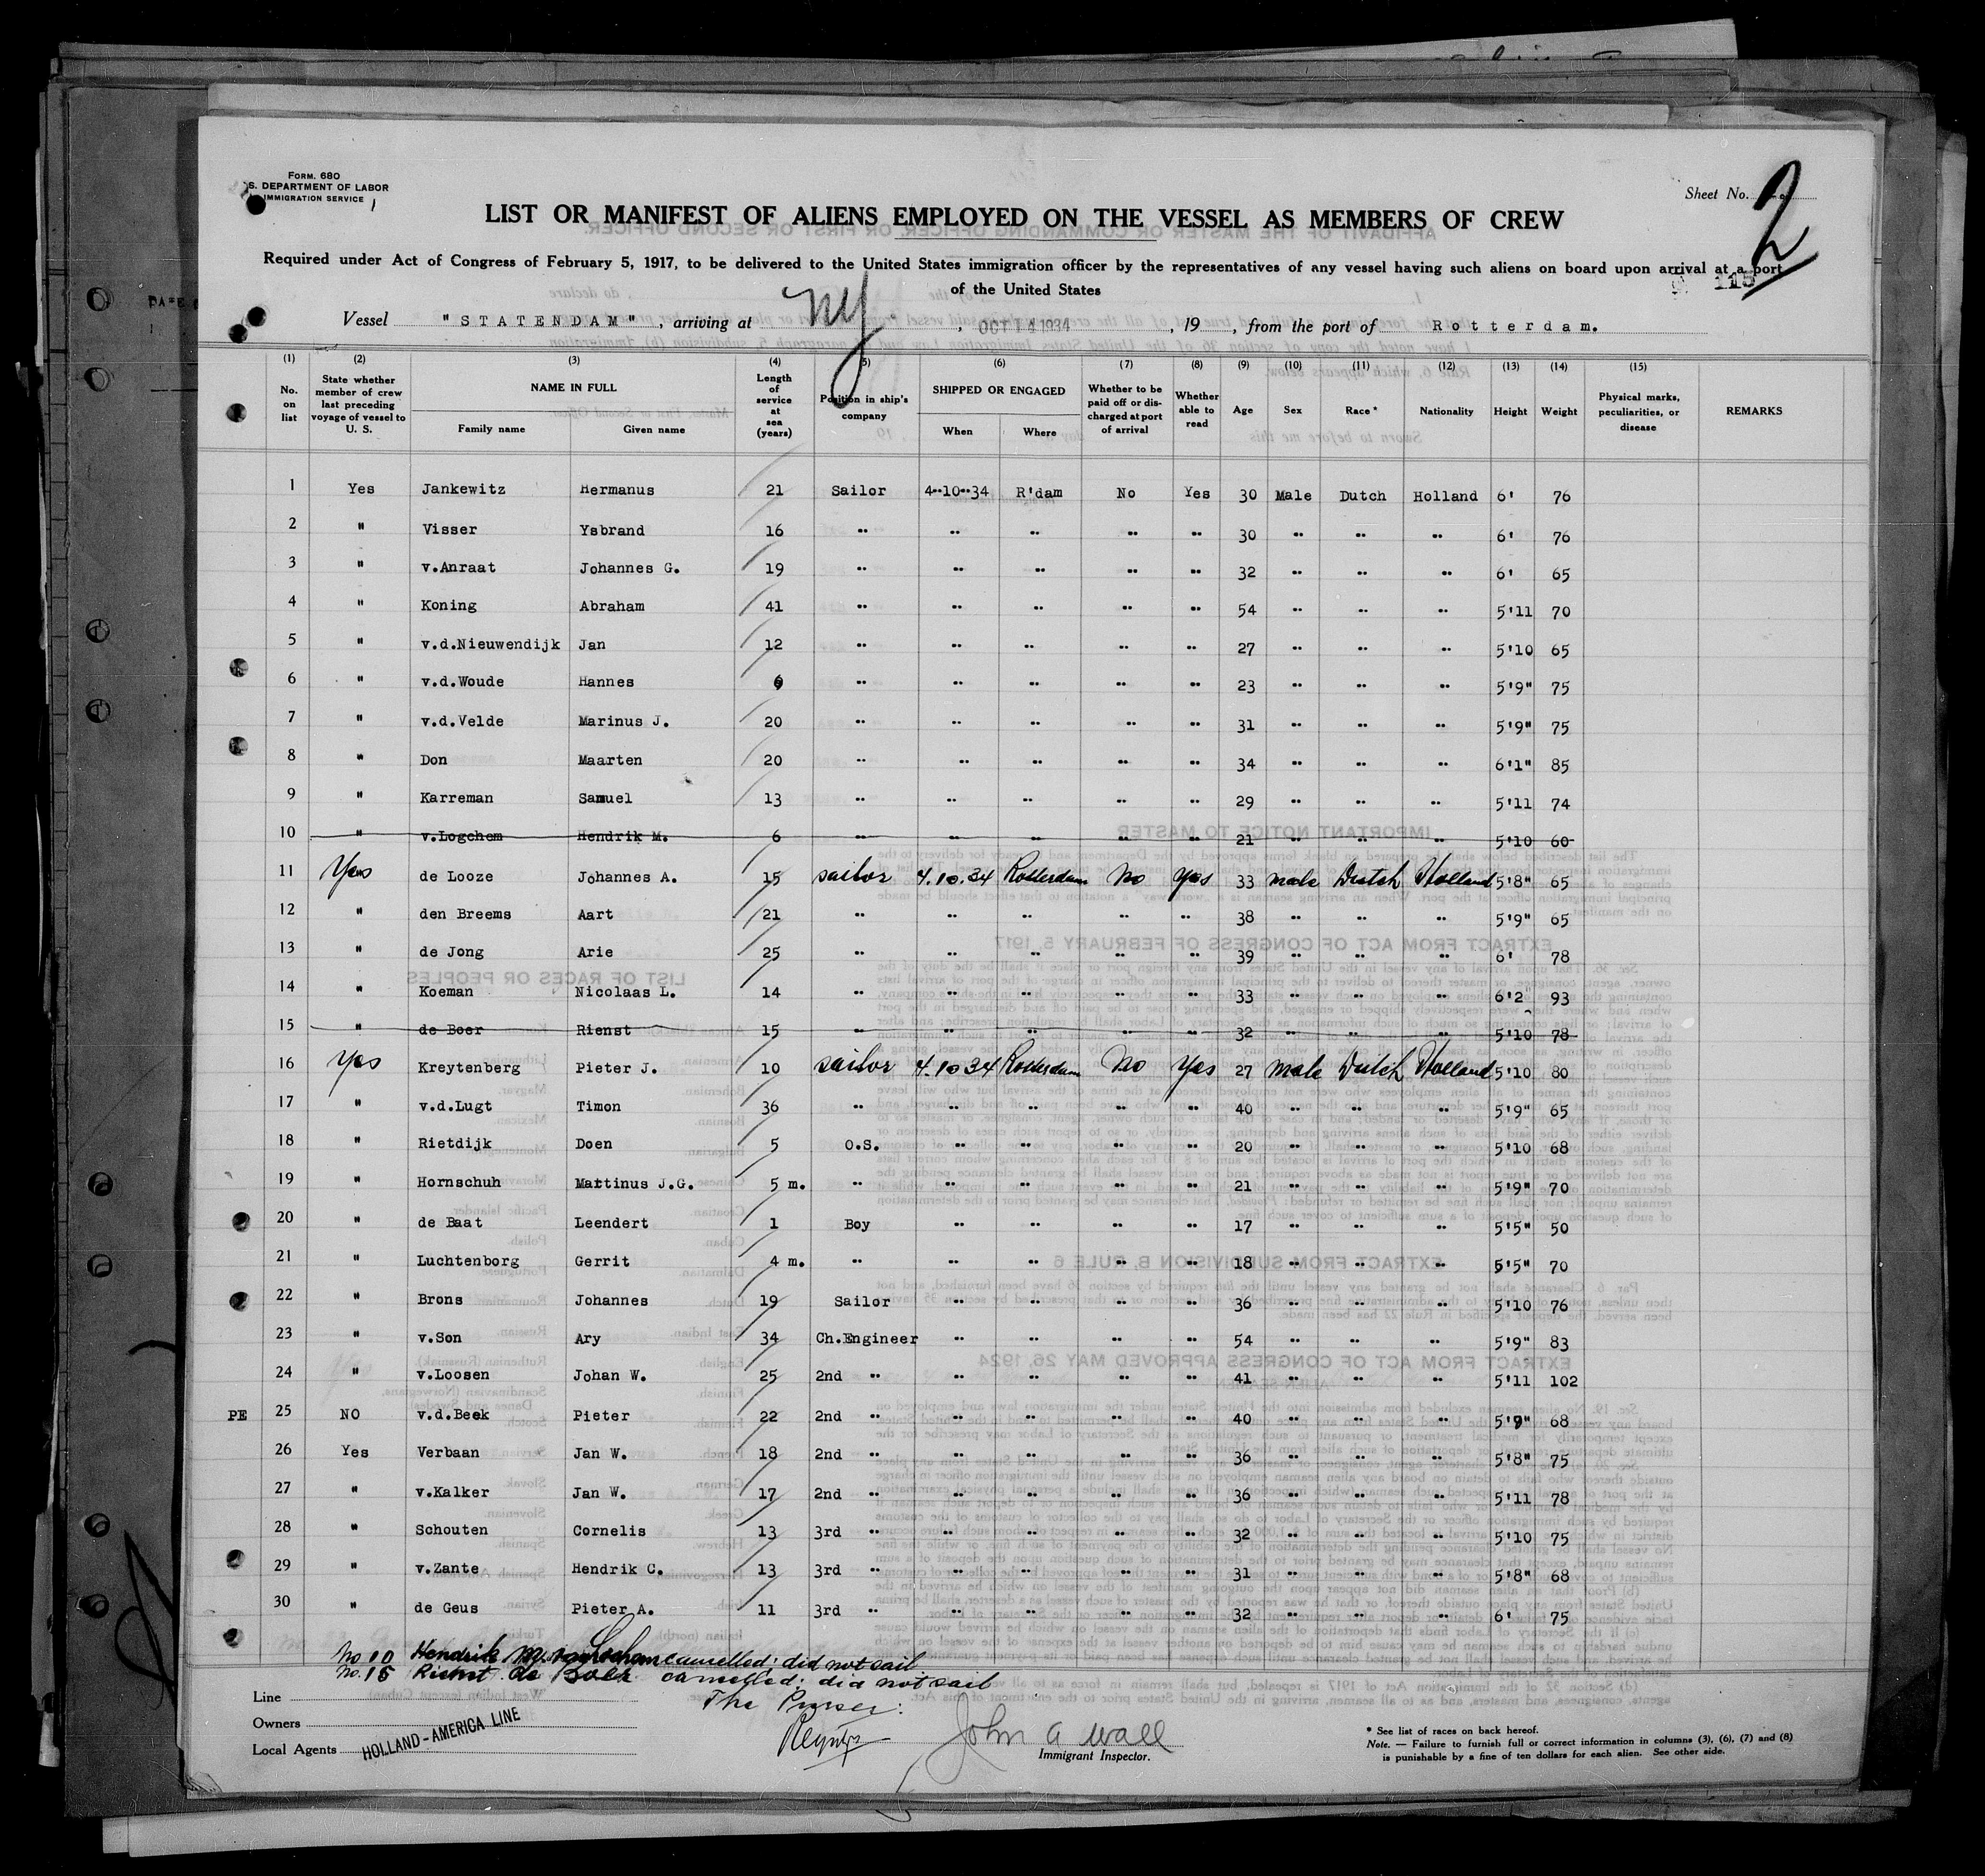 Form. 680
S. DEPARTMENT OF LABOR
IMMIGRATION SERVICE
Sheet No. 2
LIST OR MANIFEST OF ALIENS EMPLOYED ON THE VESSEL AS MEMBERS OF CREW
Required under Act of Congress of February 5, 1917, to be delivered to the United States immigration officer by the representatives of any vessel having such aliens on board upon arrival at a port
of the United States
115
Vessel "STATENDAM", arriving at NY., OCT 14 1934, 19 , from the port of Rotterdam.
(1) No. on list (2) State whether member of crew last preceding voyage of vessel to U. S. (3) NAME IN FULL Family name Given name (4) Length of service at sea (years) (5) Position in ship's company (6) SHIPPED OR ENGAGED When Where (7) Whether to be paid off or discharged at port of arrival (8) Whether able to read (9) Age (10) Sex (11) Race* (12) Nationality (13) Height (14) Weight (15) Physical marks, peculiarities, or disease REMARKS
1 Yes Jankewitz Hermanus 21 Sailor 4-10-34 R'dam No Yes 30 Male Dutch Holland 6' 76
2 " Visser Ysbrand 16 " " " " " 30 " " " 6' 76
3 " v.Anraat Johannes G. 19 " " " " " 32 " " " 6' 65
4 " Koning Abraham 41 " " " " " 54 " " " 5'11 70
5 " v.d.Nieuwendijk Jan 12 " " " " " 27 " " " 5'10 65
6 " v.d.Woude Hannes 6 " " " " " 23 " " " 5'9" 75
7 " v.d.Velde Marinus J. 20 " " " " " 31 " " " 5'9" 75
8 " Don Maarten 20 " " " " " 34 " " " 6'1" 85
9 " Karreman Samuel 13 " " " " " 29 " " " 5'11 74
10 " v.Logchem Hendrik M. 6 " " " " " 21 " " " 5'10 60
11 Yes de Looze Johannes A. 15 sailor 4.10.34 Rotterdam No yes 33 male Dutch Holland 5'8" 65
12 " den Breems Aart 21 " " " " " 38 " " " 5'9" 65
13 " de Jong Arie 25 " " " " " 39 " " " 6' 78
14 " Koeman Nicolaas L. 14 " " " " " 33 " " " 6'2 93
15 " de Boer Rienst 15 " " " " " 32 " " " 5'10 78
16 Yes Kreytenberg Pieter J. 10 sailor 4.10 34 Rotterdam No Yes 27 male Dutch Holland 5'10 80
17 " v.d.Lugt Timon 36 " " " " " 40 " " " 5'9" 65
18 " Rietdijk Doen 5 O.S. " " " " 20 " " " 5'10 68
19 " Hornschuh Martinus J.G. 5 m. " " " " " 21 " " " 5'9" 70
20 " de Baat Leendert 1 Boy " " " " 17 " " " 5'5" 50
21 " Luchtenborg Gerrit 4 m. " " " " " 18 " " " 5'5" 70
22 " Brons Johannes 19 Sailor " " " " 36 " " " 5'10 76
23 " v.Son Ary 34 Ch.Engineer " " " " 54 " " " 5'9" 83
24 " v.Loosen Johan W. 25 2nd " " " " " 41 " " " 5'11 102
PE 25 NO v.d.Beek Pieter 22 2nd " " " " " 40 " " " 5'9" 68
26 Yes Verbaan Jan W. 18 2nd " " " " " 36 " " " 5'8" 75
27 " v.Kalker Jan W. 17 2nd " " " " " 36 " " " 5'11 78
28 " Schouten Cornelis 13 3rd " " " " " 32 " " " 5'10 75
29 " v.Zante Hendrik C. 13 3rd " " " " " 31 " " " 5'8" 68
30 " de Geus Pieter A. 11 3rd " " " " " 32 " " " 6' 75
No 10 Hendrik M. van Logchem cancelled; did not sail
No. 15 Rienst de Boer cancelled; did not sail
The Purser:
Line
Owners
Local Agents HOLLAND-AMERICA LINE
John A Wall
Immigrant Inspector.
* See list of races on back hereof.
Note. — Failure to furnish full or correct information in columns (3), (6), (7) and (8)
is punishable by a fine of ten dollars for each alien. See other side.